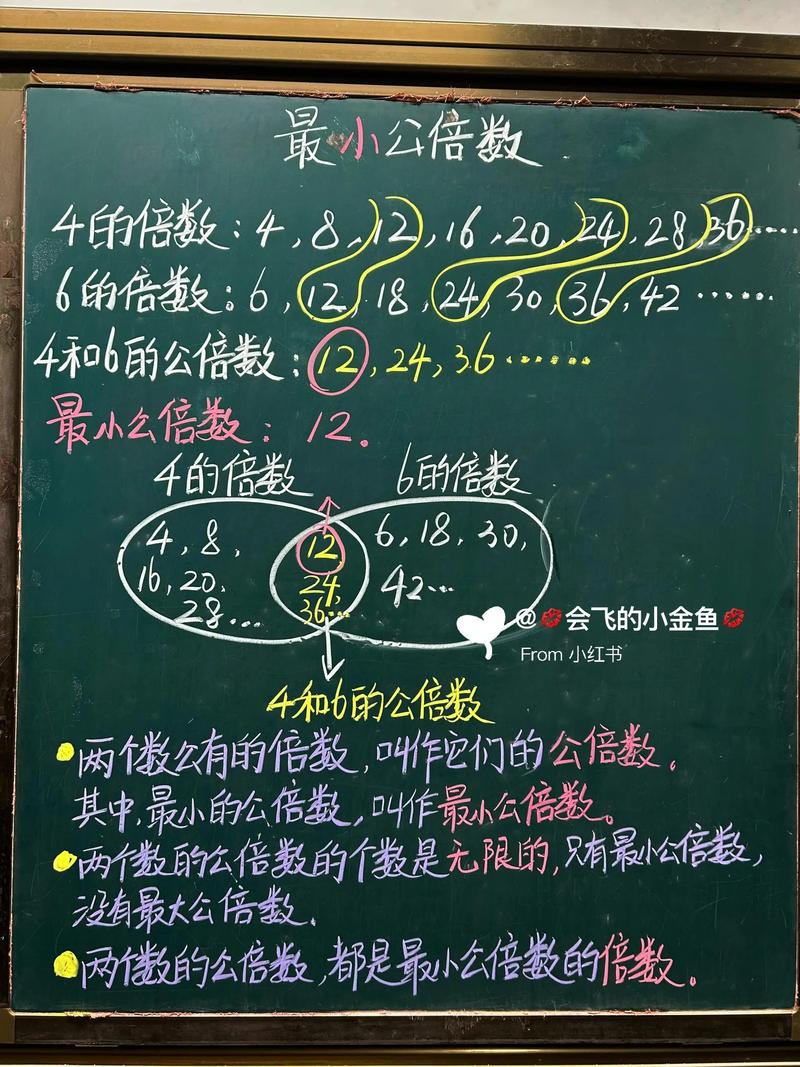 最小公倍数
4的倍数：4，8，12，16，20，24，28，36……
6的倍数：6，12，18，24，30，36，42……
4和6的公倍数：12，24，36……
最小公倍数：12。
4的倍数
6的倍数
4，8，
16，20，
28…
12，
24，
36…
6，18，30，
42…
@💋会飞的小金鱼💋
From 小红书
4和6的公倍数
两个数公有的倍数，叫作它们的公倍数。
其中，最小的公倍数，叫作最小公倍数。
两个数的公倍数的个数是无限的，只有最小公倍数，
没有最大公倍数。
两个数的公倍数，都是最小公倍数的倍数。